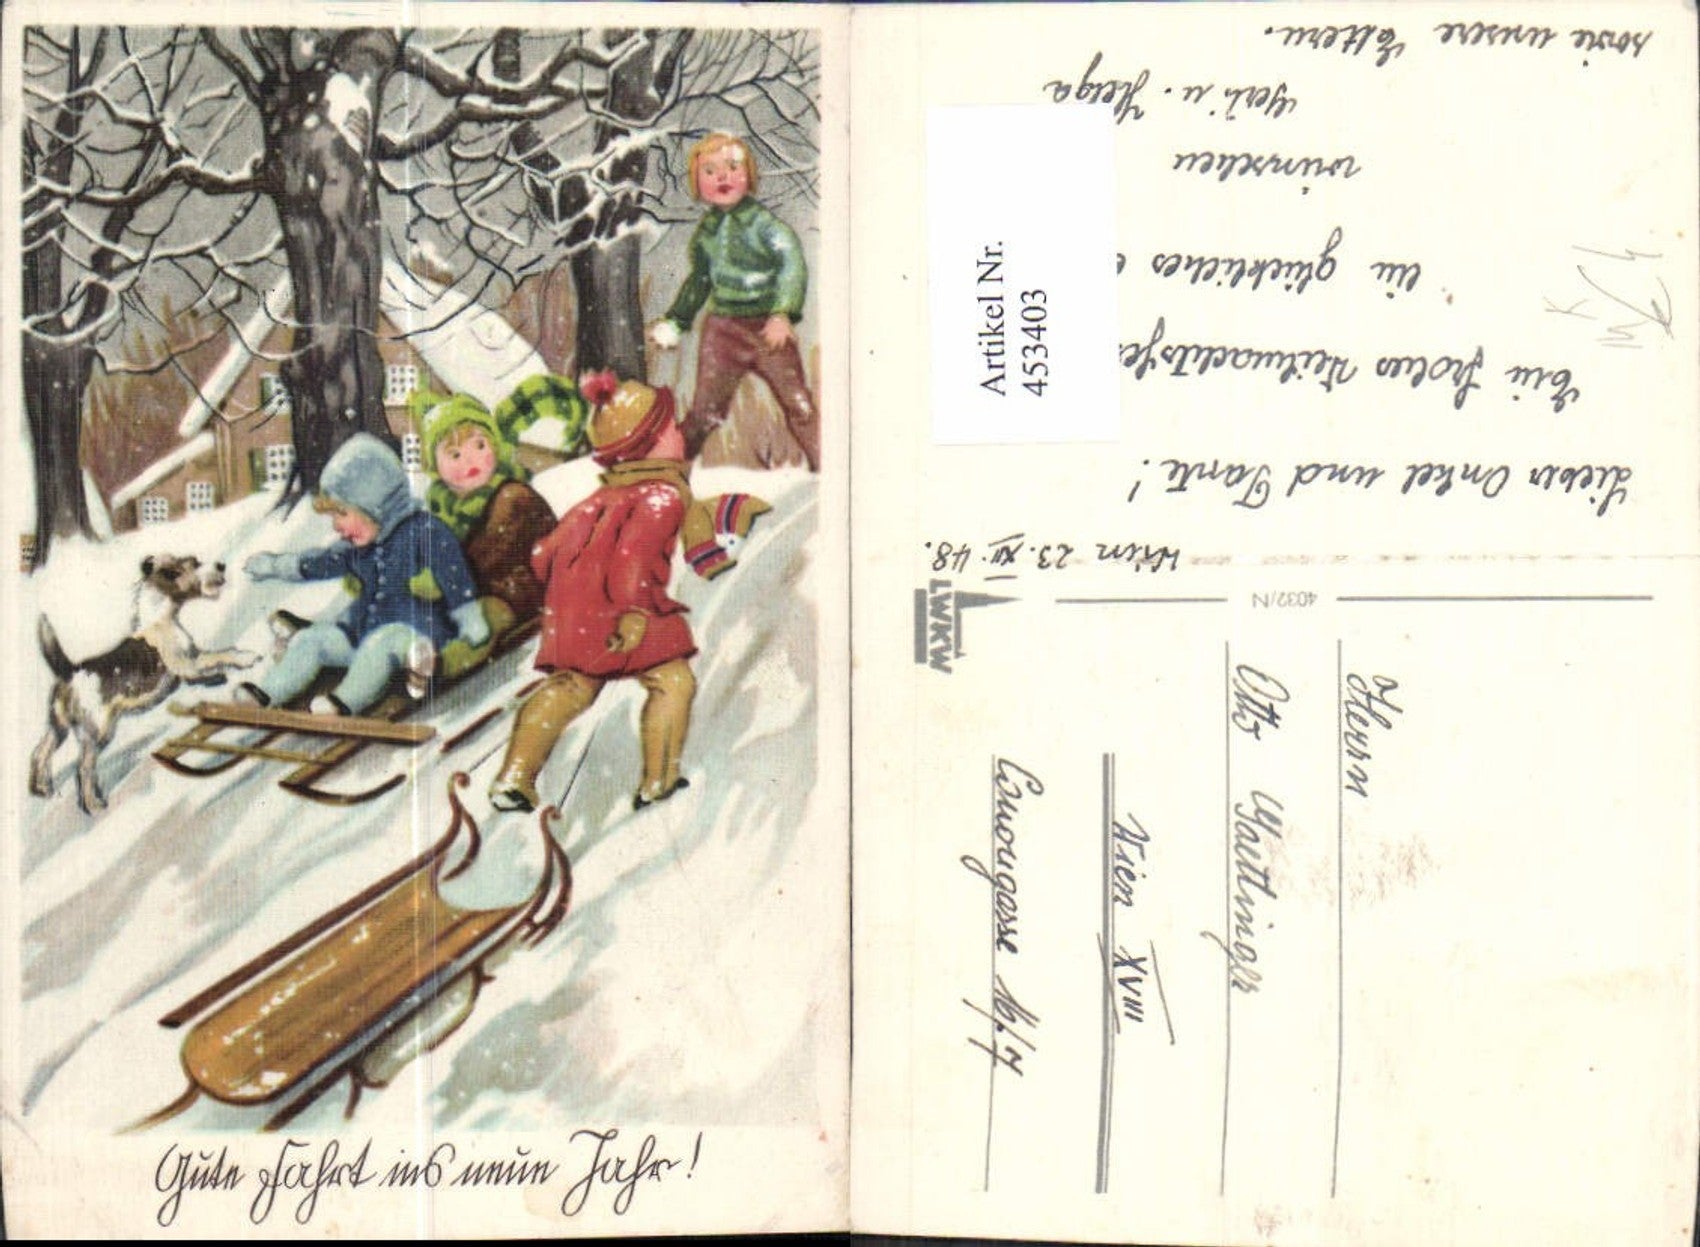 Gute Fahrt ins neue Jahr!
Artikel Nr.
453403
Wien 23. XII. 48.
Lieber Onkel und Tante!
Ein frohes Weihnachtsfe
ein glückliches
wünschen
Gerti u. Helga
sowie unsere Eltern.
LWKW
4032/N
Herrn
Otto
Wien XVIII
16/7